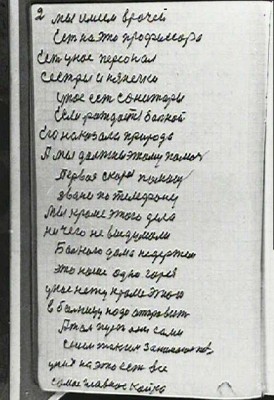 2 мы имеим врачей
Ест на это профиссора
Ест уное персонал
сестри и нянечки
уное ест санитары
Если раждаетс балной
Его наказала природа
А мы должны этому памоч
Первая скора помищ
звани по телефону
мы кроме этого дела
ничего не видумали
Балного дома недержем
это наше одно горе
уное нету кроме этого
в балницу надо отправит
А там пуст они сами
с ним занимаютс
уних на это ест все
самое главное койка